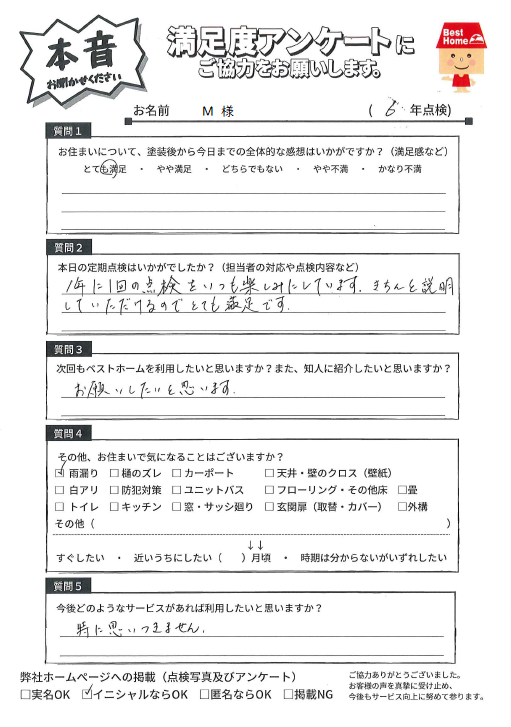 本音
お聞かせください
満足度アンケートに
ご協力をお願いします。
Best Home
お名前 M 様 ( 年点検)
質問1
お住まいについて、塗装後から今日までの全体的な感想はいかがですか？（満足感など）
とても満足 ・ やや満足 ・ どちらでもない ・ やや不満 ・ かなり不満
質問2
本日の定期点検はいかがでしたか？（担当者の対応や点検内容など）
1年に1回の点検をいつも楽しみにしています。きちんと説明
していただけるのでとても満足です。
質問3
次回もベストホームを利用したいと思いますか？また、知人に紹介したいと思いますか？
お願いしたいと思います。
質問4
その他、お住まいで気になることはございますか？
☑雨漏り □樋のズレ □カーポート □天井・壁のクロス（壁紙）
□白アリ □防犯対策 □ユニットバス □フローリング・その他床 □畳
□トイレ □キッチン □窓・サッシ廻り □玄関扉（取替・カバー） □外構
その他（ ）
↓↓
すぐしたい ・ 近いうちにしたい（ ）月頃 ・ 時期は分からないがいずれしたい
質問5
今後どのようなサービスがあれば利用したいと思いますか？
特に思いつきません。
弊社ホームページへの掲載（点検写真及びアンケート）
□実名OK ☑イニシャルならOK □匿名ならOK □掲載NG
ご協力ありがとうございました。
お客様の声を真摯に受け止め、
今後もサービス向上に努めて参ります。